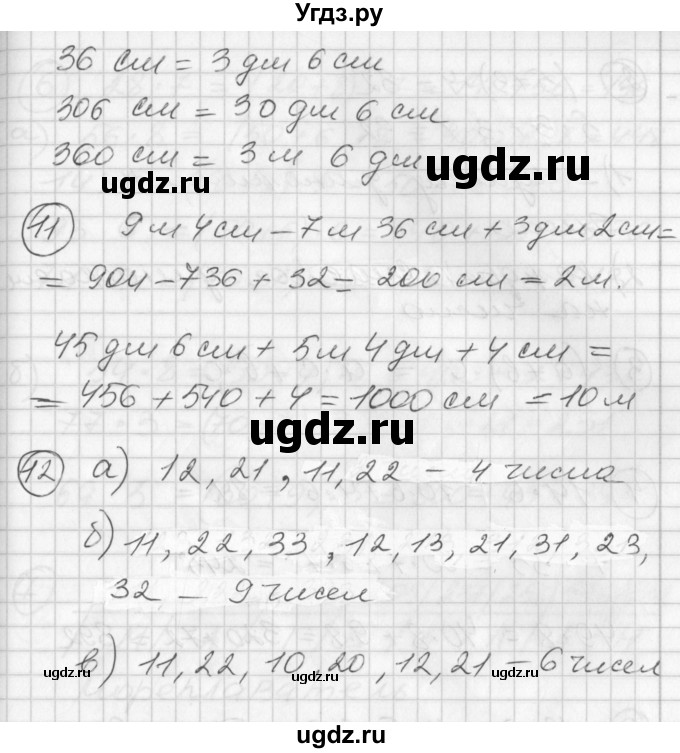 Угдз.ру
36 см = 3 дм 6 см
306 см = 30 дм 6 см
360 см = 3 м 6 дм
ugdz.ru
ugdz.ru
11 9 м 4 см - 7 м 36 см + 3 дм 2 см =
= 904 - 736 + 32 = 200 см = 2 м.
45 дм 6 см + 5 м 4 дм + 4 см =
= 456 + 540 + 4 = 1000 см = 10 м
ugdz.ru
12 а) 12, 21, 11, 22 - 4 числа
б) 11, 22, 33, 12, 13, 21, 31, 23,
32 - 9 чисел
в) 11, 22, 10, 20, 12, 21 - 6 чисел
ugdz.ru
ugdz.ru
ugdz.ru
ugdz.ru